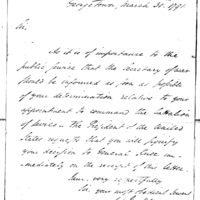 Georgetown, March 31. 1791.
Sir,
As it is of importance to the
public service that the Secretary of war
should be informed as soon as possible
of your determination relative to your
appointment to command the battalion
of levies — The President of the United
States requests that you will signify
your decision to General Knox im-
mediately on the receipt of this letter.
I am, very respectfully
Sir, your most Obedient Servant